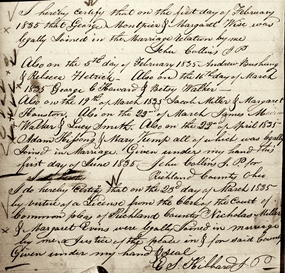 I hereby certify that on the first day of February
1835 that George Monstpier & Margaret Wise was
Legally Joined in the Marriage Relation by me
John Collins J P
Also on the 5th day of February 1835 Andrew Bushung
& Rebecca Hetrick - Also on the 16th day of March
1835 George C Howard & Betsy Walker -
Also on the 19th of March 1835 Jacob Miller & Margaret
Houston. Also on the 23rd of March James M
Walker & Lucy Smith. Also on the 23rd of April 1835
Adam & Mary Kemp all of which was legally
Joined in Marriage. Given under my hand this
first day of June 1835 John Collins J. P. for
Richland County Ohio
I do hereby Certify that on the 23d day of March 1835
by virtue of a License from the Clerk of the Court of
Common pleas of Richland County Nicholas Miller
& Margaret Evans were Legally Joined in marriage
by me a Justice of the peace in & for said County
Given under my hand & seal
E S Hibbard J. P.